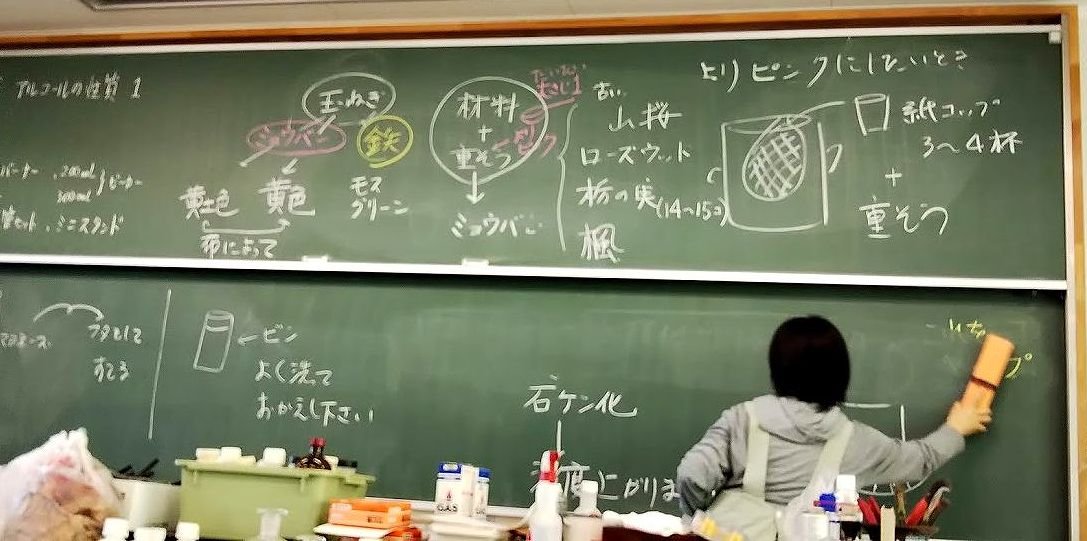 アルコールの性質 1
玉ねぎ
ミョウバン
鉄
黄土色
黄色
布によって
モス
グリーン
材料
+
重そう
ピンク
ミョウバン
古い
山桜
ローズウット
栃の実(14〜15コ)
楓
よりピンクにしたいとき
紙コップ
3〜4杯
+
重そう
バーナー
200ml
300ml
ビーカー
ミニスタンド
フタとして
すてる
ビン
よく洗て
おかえし下さい
石ケン化
GAS